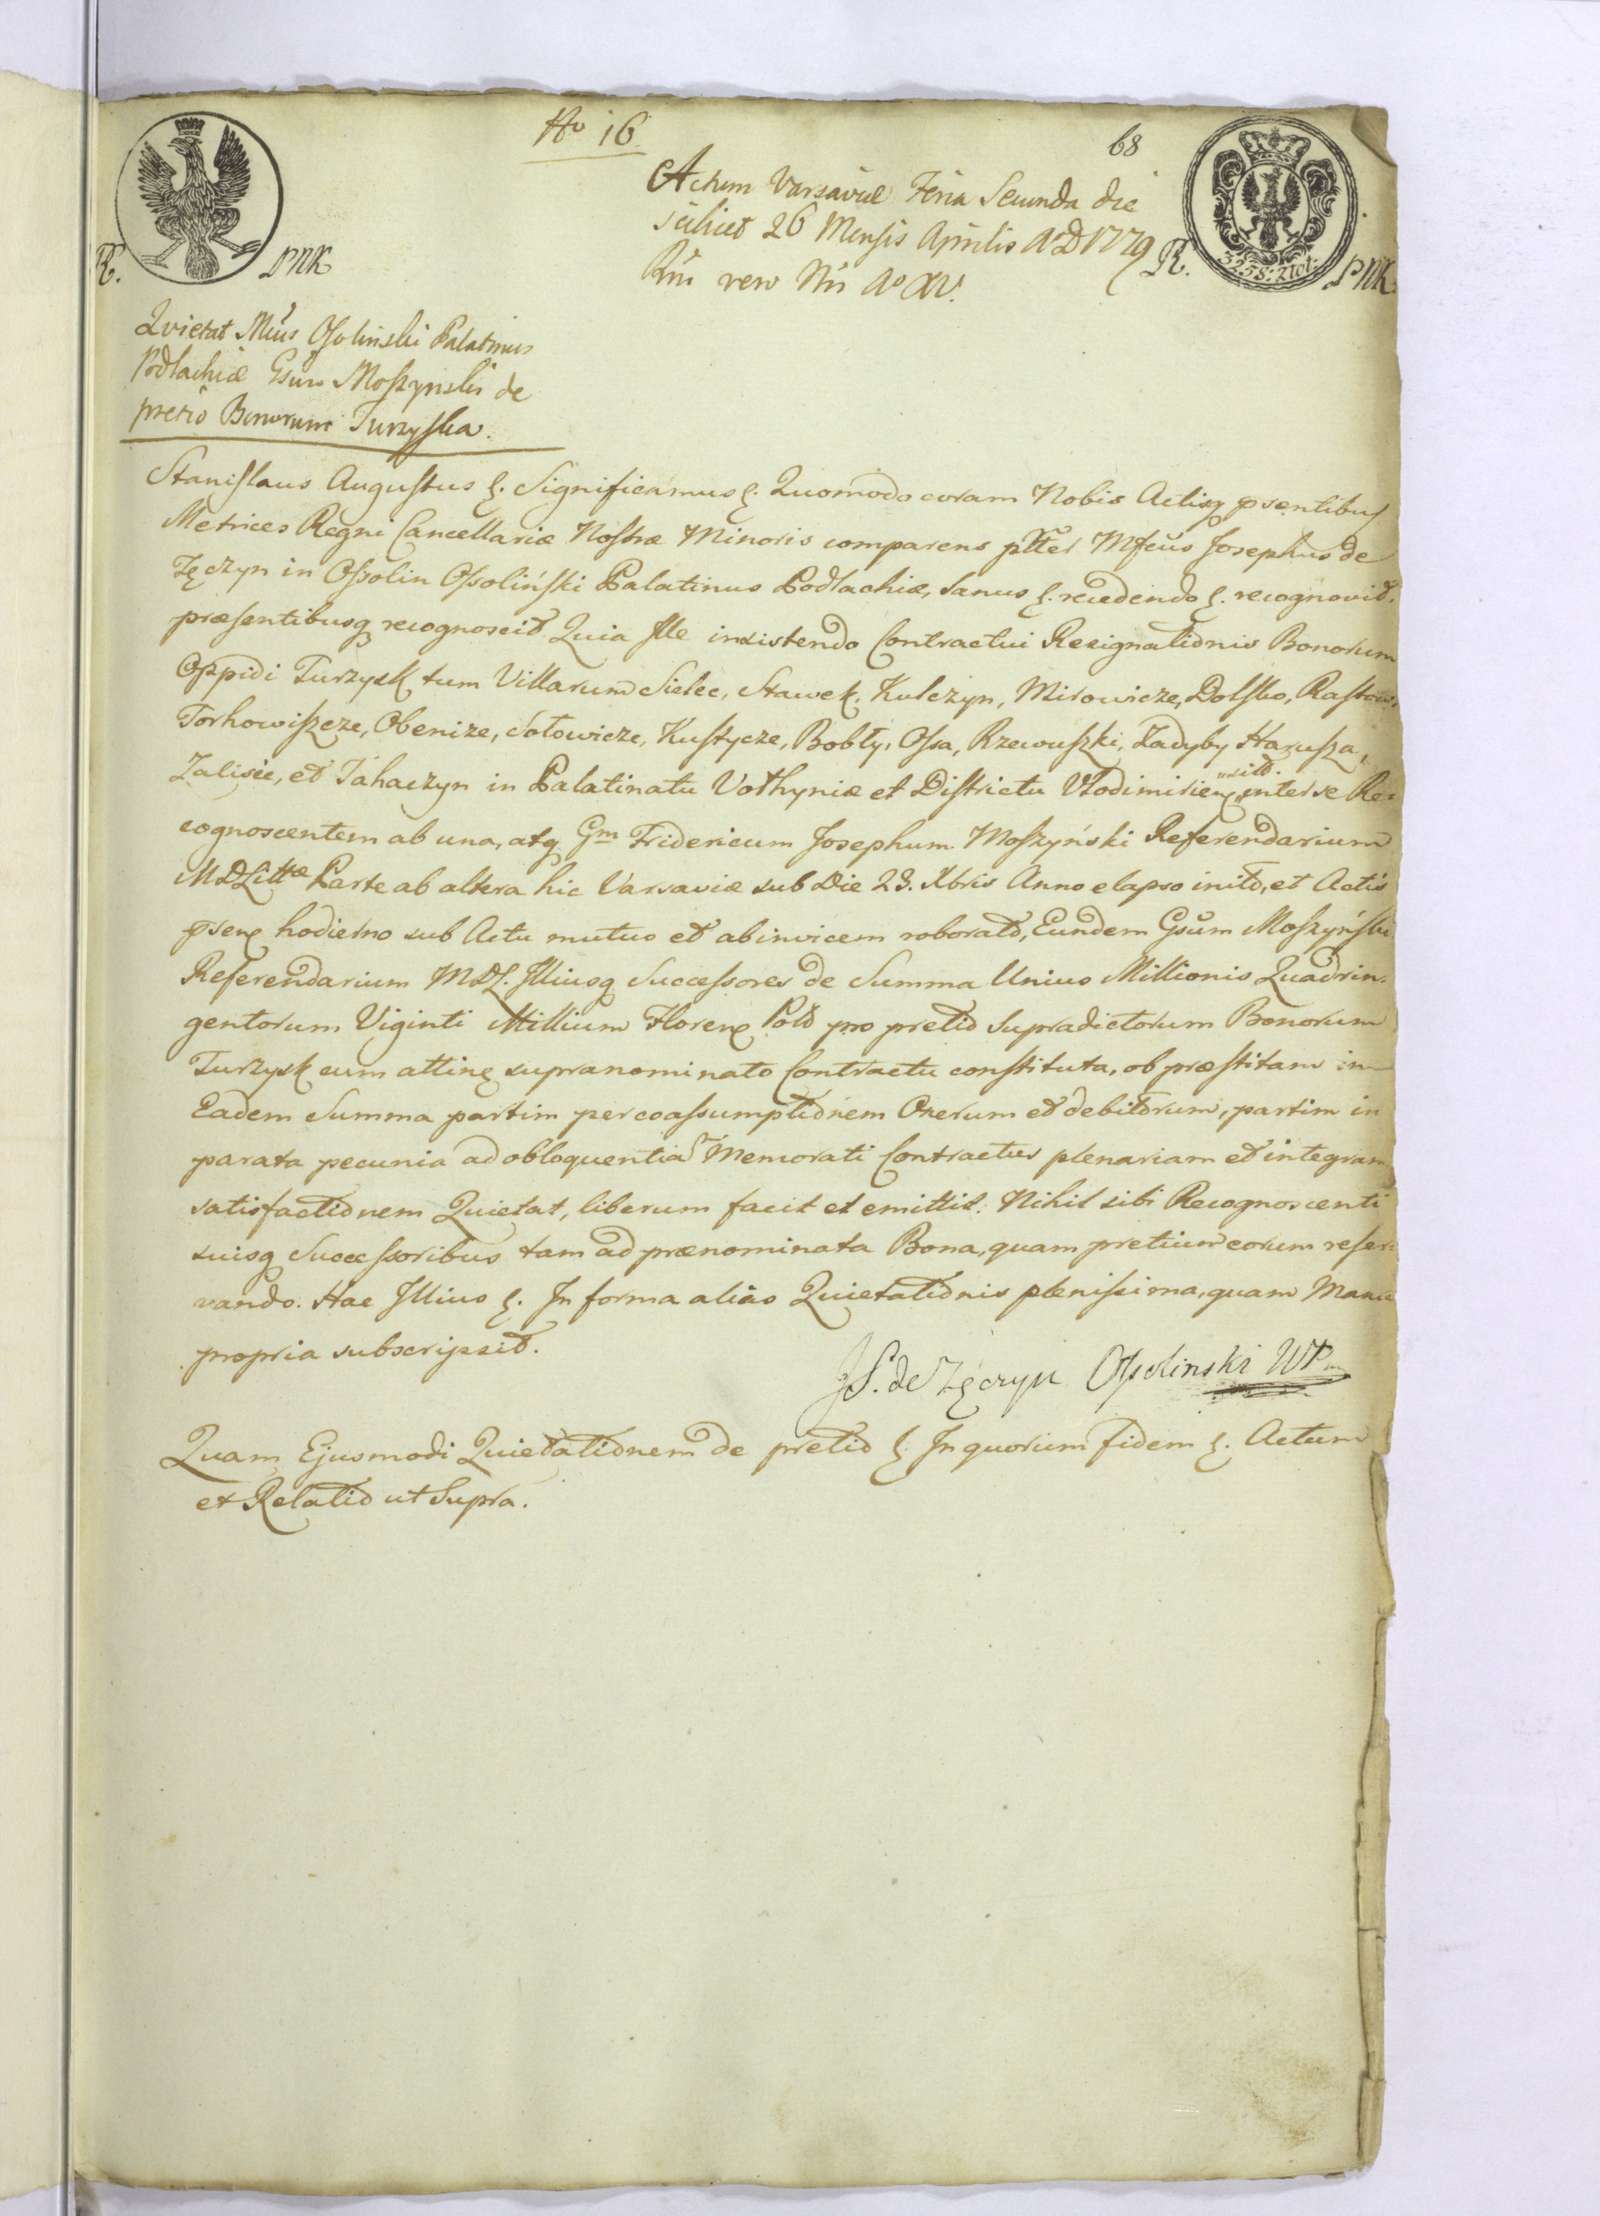 No 16
68
Actum Varsaviæ Feria Secunda die
scilicet 26 Mensis Aprilis A D 1779
Rni vero Nri Ao XV.
R. PNK
R. 3258: zlot: PNK
Quietat Mfcus Ossolinski Palatinus
Podlachiæ Gsum Moszynski de
pretio Bonorum Turzyska.
Stanislaus Augustus &. Significamus &. Quomodo coram Nobis Actisq psentibus
Metrices Regni Cancellariæ Nostræ Minoris comparens pltter Mfcus Josephus de
Tęczyn in Ossolin Ossoliński Palatinus Podlachiæ, sanus &. recedendo &. recognovit.
præsentibusq recognoscit Quia Ille insistendo Contractui Resignationis Bonorum
Oppidi Turzysk tum Villarum Sielec, Stawek, Kulczyn, Mirowicze, Dolsko, Rastow,
Torhowiszcze, Obenize, Sołowicze, Kustycze, Bobły, Ossa, Rzewuszki, Zadyby Harusza,
Zalisie, et Tahaczyn in Palatinatu Volhyniæ et Districtu Vlodimirien inter se Re=
cognoscentem ab una, atq Gm Fridericum Josephum Moszyński Referendarium
MDLittæ Parte ab altera hic Varsaviæ sub Die 23. Xbris Anno elapso inito, et Actis
psen hodierno sub Actu mutuo et abinvicem roborato, Eundem Gsum Moszyński
Referendarium MDL. Illiusq Successores de Summa Unius Millionis Quadrin=
gentorum Viginti Millium Floren Pold pro pretio supradictorum Bonorum
Turzysk cum attin supranominato Contractu constituta, ob præstitam in
Eadem Summa partim per coassumptionem Onerum et debitorum, partim in
parata pecunia ad obloquentia Memorati Contractus plenariam et integram
satisfactionem Quietat, liberum facit et emittit. Nihil sibi Recognoscenti
suisq Successoribus tam ad prænominata Bona, quam pretium eorum reser=
vando. Hac Illius &. In forma alias Quietationis plenissima, quam Manu
propria subscripsit.
JS. de Tęczyn Ossolinski WP
Quam Ejusmodi Quietationem de pretio &. In quorum fidem &. Actum
et Relatio ut Supra.